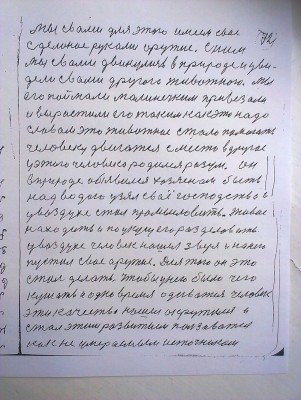 мы свами для этого имеем свое
сделоное руками оружие. Сним
мы свами двинулись в природе и дви
дели свами другого животного. Мы
его поймали маленьким привезали
и вырастили его таким как это надо
словом это животное стало помогать
человеку двигатся с места в другое
у этого человека родился разум. он
в природе объявился хозяеном быть
над водого узял своё господство а
увоздухе стал промысловить. тавас
находить а поцущего разделовать
увоздухе человек нашел звуя и него
пустил свое оружие. Для этого он это
стал делать чтобы унего было чего
кушать а одно время одеватся человек
эти качества нашел окрутился а
стал этим развитием показаватся
как не имераемым источником